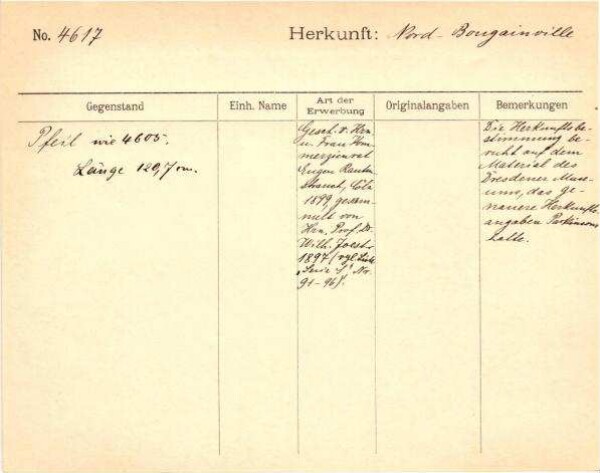 No. 4617 Herkunft: Nord-Bougainville
Gegenstand Einh. Name Art der Erwerbung Originalangaben Bemerkungen
Pfeil wie 4605.
Länge 120,7 cm.
Gesch. v. Hrn
u. Frau Kom-
merzienrat
Eugen Rauten-
strauch, Cöln
1899, gesam-
melt von
Hrn. Prof. Dr.
Wilh. Joest
1897 (vgl. Liste
"Serie S" No.
91-96).
Die Herkunftsbe-
stimmung be-
ruht auf dem
Material des
Dresdener Muse-
ums, das ge-
nauere Herkunfts-
angaben Parkinsons
hatte.